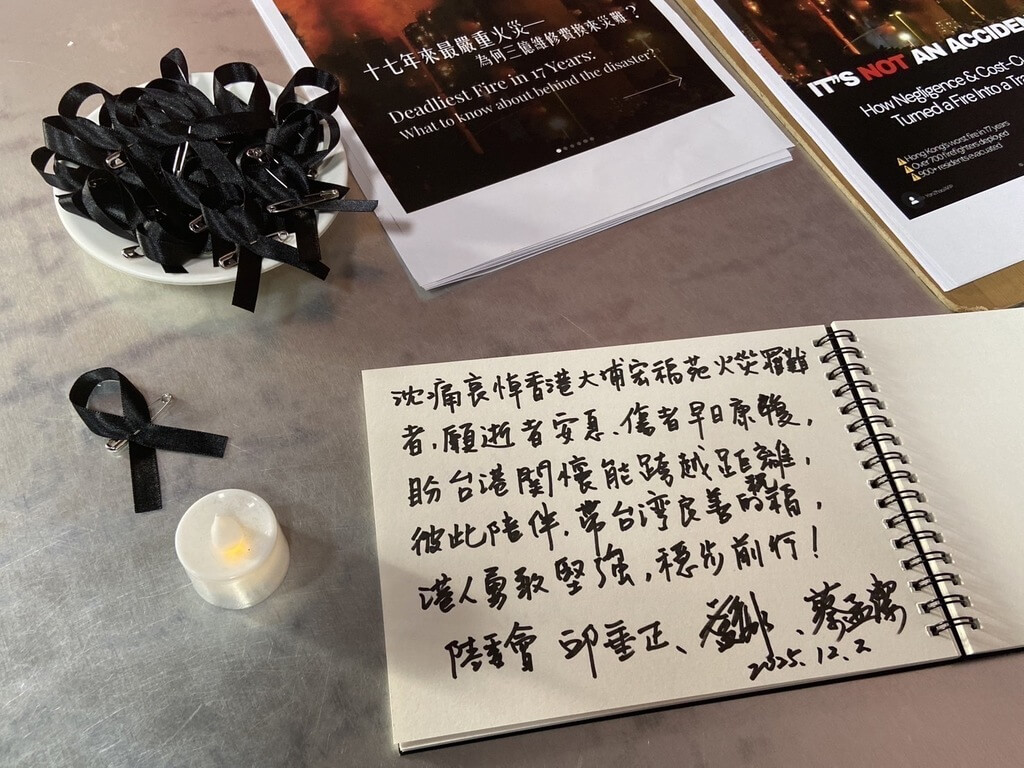 十七年來最嚴重火災—
為何三億維修費換來災難？
Deadliest Fire in 17 Years:
What to know about behind the disaster?
IT'S NOT AN ACCIDE
How Negligence & Cost-Cu
Turned a Fire Into a Tr
Hong Kong's worst fire in 17 years
Over 700 firefighters deployed
900+ residents evacuated
沈痛哀悼香港大埔宏福苑火災罹難
者，願逝者安息、傷者早日康復，
盼台港關懷能跨越距離，
彼此陪伴，帶台湾良善的祝福，
港人勇敢堅強，穩步前行！
陸委會 邱垂正、
、蔡孟
2025.12.2